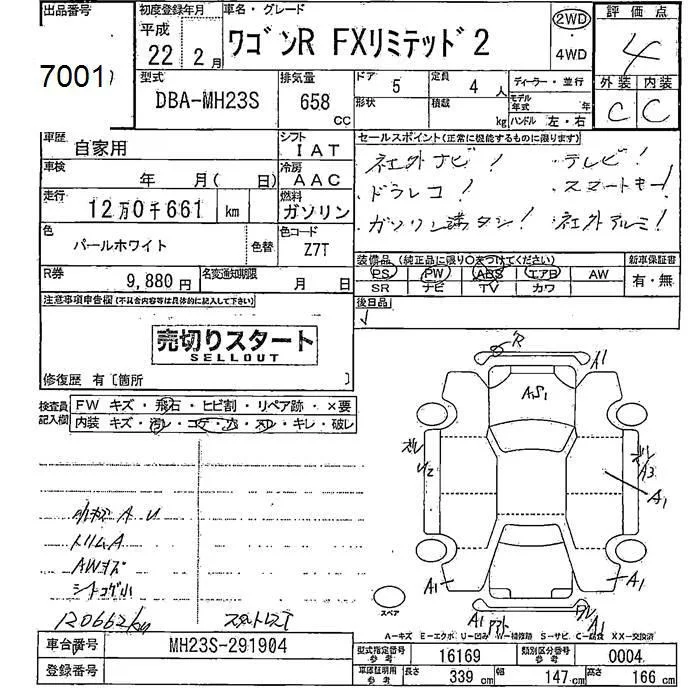 出品番号 初度登録年月 車名・グレード 2WD 評価点
平成
7001 22年 2月 ワゴンR FXリミテッド2 4WD 4
型式 排気量 ドア 5 定員 4人 ディーラー・並行 外装 内装
DBA-MH23S 658cc 形状 積載 kg モデル年式 年 C C
ハンドル 左・右
車歴 自家用 シフト IAT セールスポイント(正常に機能するものに限ります)
車検 年 月( 日) 冷房 AAC 社外ナビ! テレビ!
走行 12万0千661 km 燃料 ガソリン ドラレコ! スマートキー!
ガソリン満タン! 社外アルミ!
色 パールホワイト 色替 色コード Z7T
装備品(純正品に限り○をつけてください) 新車保証書
R券 9,880円 名変通知期限 月 日 PS PW ABS エアB AW 有・無
SR ナビ TV カワ
注意事項申告欄(不具合内容等は具体的に記入して下さい) 後日品
売切りスタート
SELLOUT
修復歴 有〔箇所 〕
検査員記入欄 FW キズ・飛石・ヒビ割・リペア跡・×要
内装 キズ・汚レ・コゲ・穴・スレ・キレ・破レ
R
A1
AS1
U2
A3
A1
A U
トリムA
AWキズ
シートコゲ小
A1 A1
スペア
120662km スタットレスT A1 A1
A-キズ E-エクボ U-凹み W-補修跡 S-サビ C-腐食 XX-交換済
車台番号 MH23S-291904 型式指定番号 参考 16169 類別区分番号 参考 0004
登録番号 車庫証明用 参考 長さ 339cm 幅 147cm 高さ 166cm